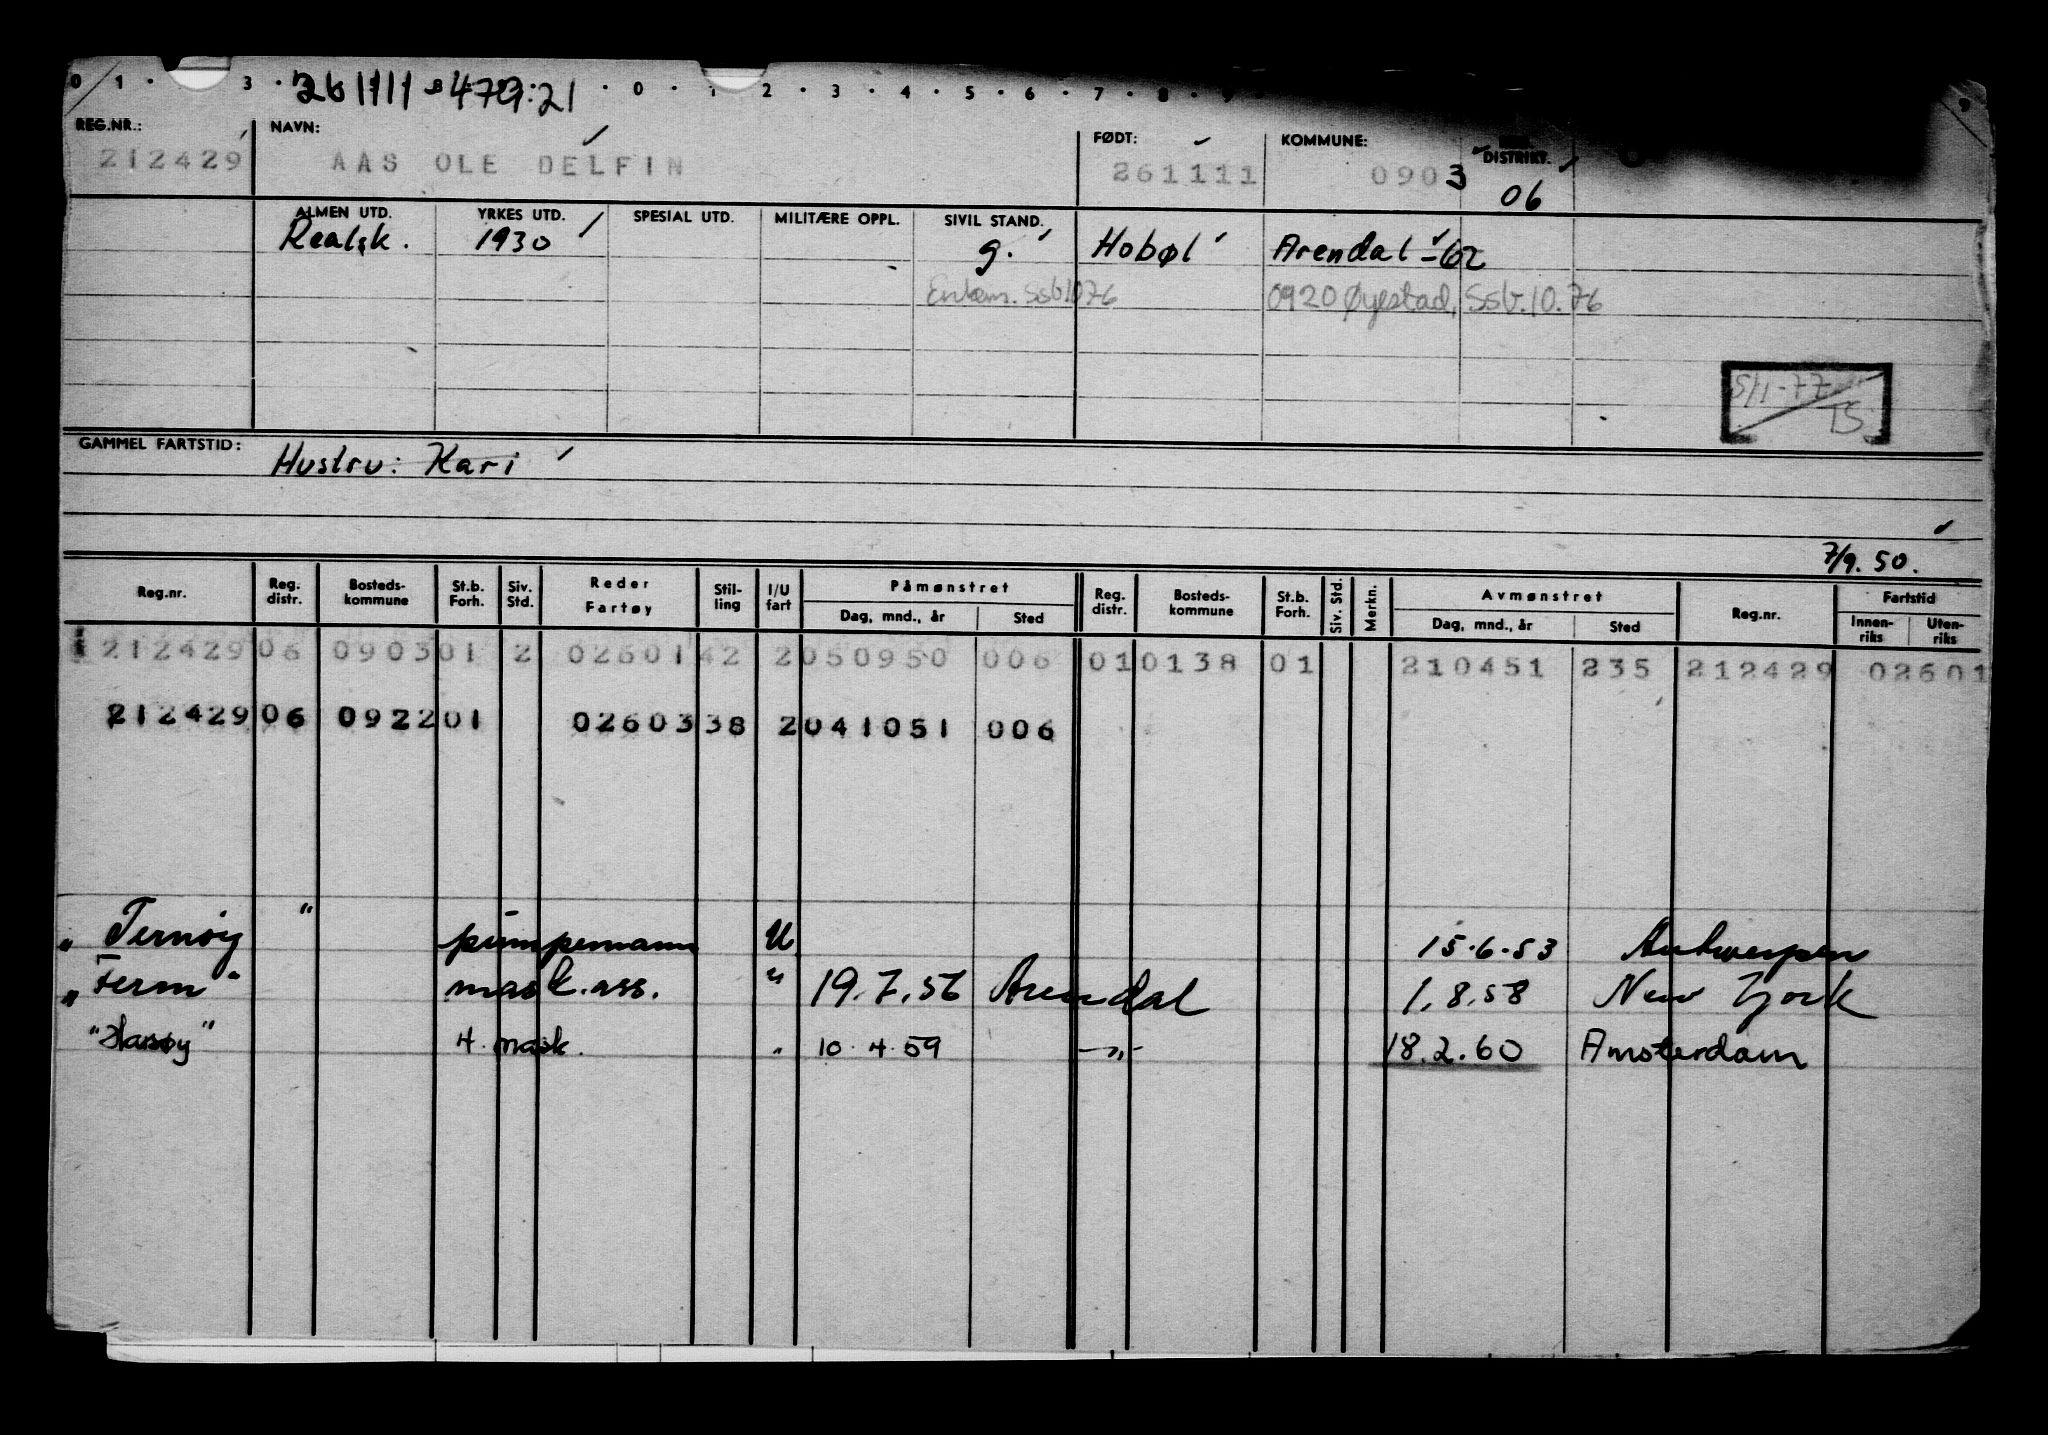 0 1 · 3 · 261111 479:21 · 0 · 1 2 · 3 · 4 · 5 · 6 · 7 · 8 · 9 9
REG.NR.: NAVN: FØDT: KOMMUNE: DISTRIKT.
212429 AAS OLE DELFIN 261111 0903 06
ALMEN UTD. YRKES UTD. SPESIAL UTD. MILITÆRE OPPL. SIVIL STAND.
Realsk. 1930 g. Hobøl Arendal -62
Enkem. Ssb 10 76 0920 Øyestad, Ssb. 10. 76
5/1-77
TS
GAMMEL FARTSTID: Hustru: Kari
7/9. 50.
Reg.nr. Reg. distr. Bosteds-kommune St.b. Forh. Siv. Std. Reder Fartøy Stil-ling I/U fart Påmønstret Dag, mnd., år Sted Reg. distr. Bosteds-kommune St.b. Forh. Siv. Std. Merkn. Avmønstret Dag, mnd., år Sted Reg.nr. Fartstid Innen-riks Uten-riks
212429 06 0903 01 2 02601 42 2 050950 006 01 0138 01 210451 235 212429 02601
212429 06 0922 01 02603 38 2 041051 006
" Ternøy " pumpemann U 15.6.53 Antwerpen
" Ferm " mask. ass. " 19.7.56 Arendal 1.8.58 New York
" Havsøy " 4. mask. " 10.4.59 -"- 18.2.60 Amsterdam